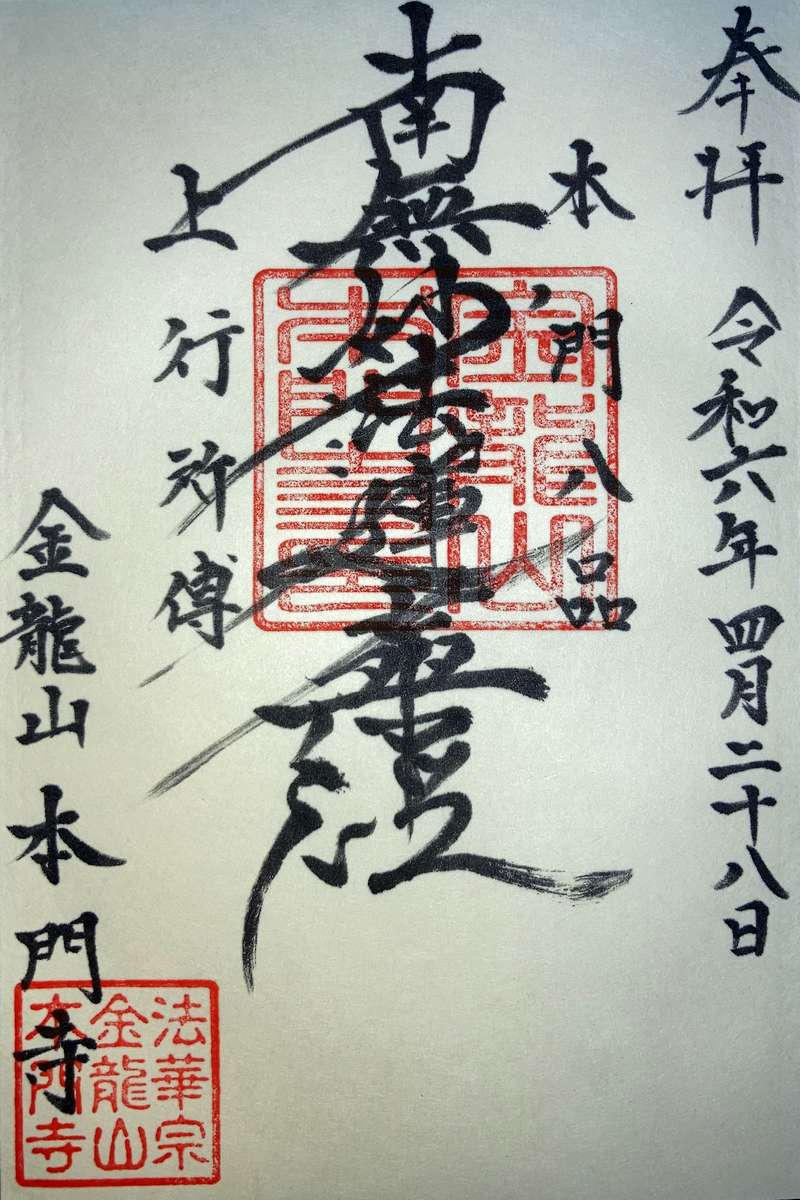 奉拝 令和六年四月二十八日
本門八品
南無妙法蓮華經
上行所傳
金龍山 本門寺
法華宗
金龍山
本門寺